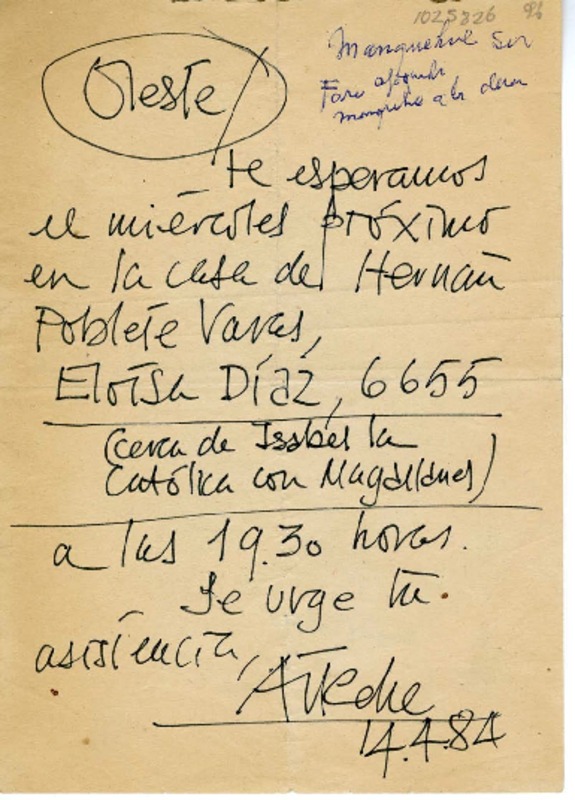 1025326
Manquehue Sur
Oreste
te esperamos
el miércoles próximo
en la casa de Hernán
Poblete Varas,
Eloísa Díaz, 6655
(cerca de Isabel la
Católica con Magallanes)
a las 19.30 horas.
Se urge tu
asistencia,
14.4.84